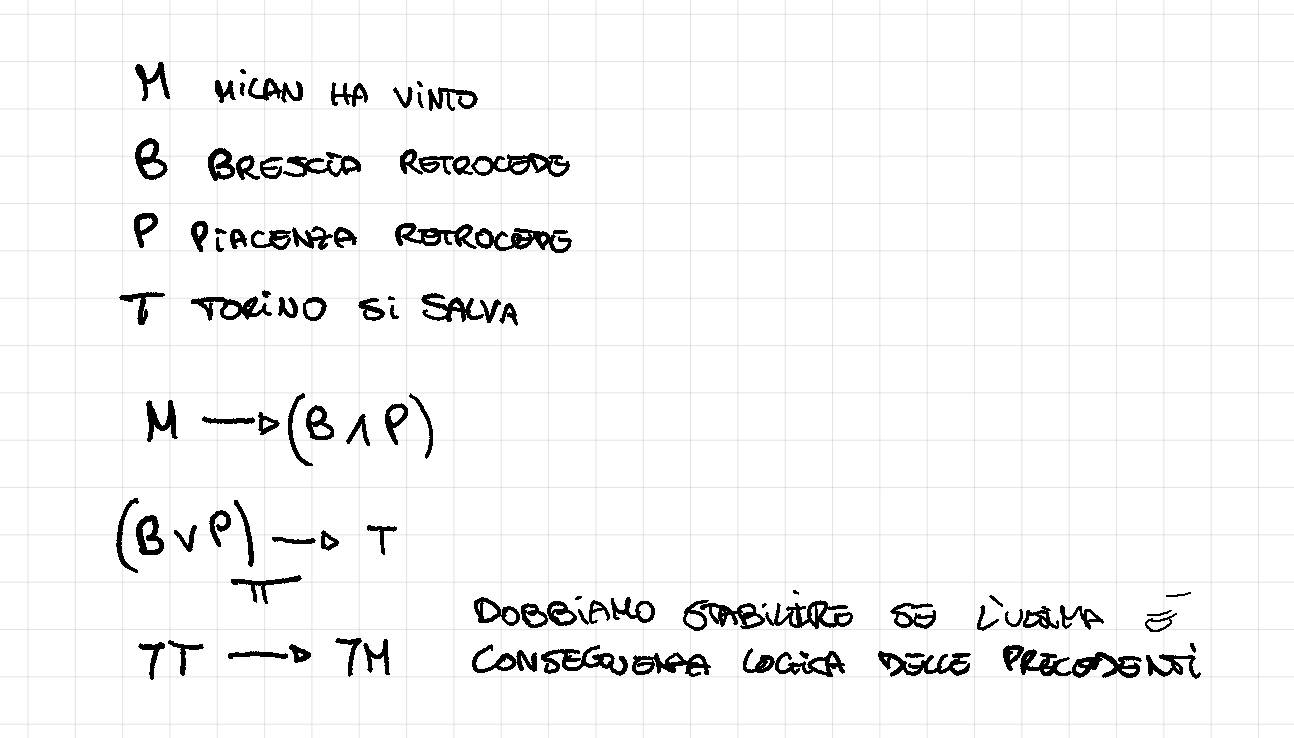 M MILAN HA VINTO
B BRESCIA RETROCEDE
P PIACENZA RETROCEDE
T TORINO SI SALVA
M → (B ∧ P)
(B ∨ P) → T
⫪
¬T → ¬M
DOBBIAMO STABILIRE SE L'ULTIMA È
CONSEGUENZA LOGICA DELLE PRECEDENTI